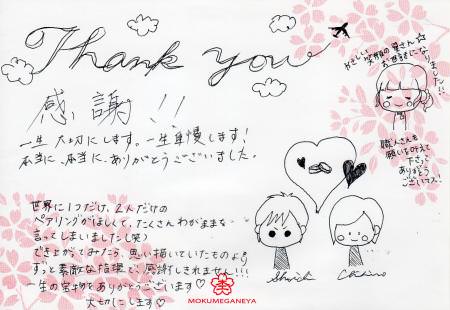 Thank you
感謝!!
一生大切にします。一生自慢します!
本当に、本当に、ありがとうございました。
やさしい笑顔の
さん☆
お世話になり
ました!!
職人さんも
願いを叶えて
下さって
ありがとう
ございます!
世界に1つだけ、2人だけの
ペアリングがほしくて、たくさんわがままな
言ってしまいました(笑)
でき上がってみたら、思い描いていたものより
ずっと素敵な指環で、感謝しきれません!!!
一生の宝物をありがとうございます♡
大切にします♡
Chihiro
MOKUMEGANEYA